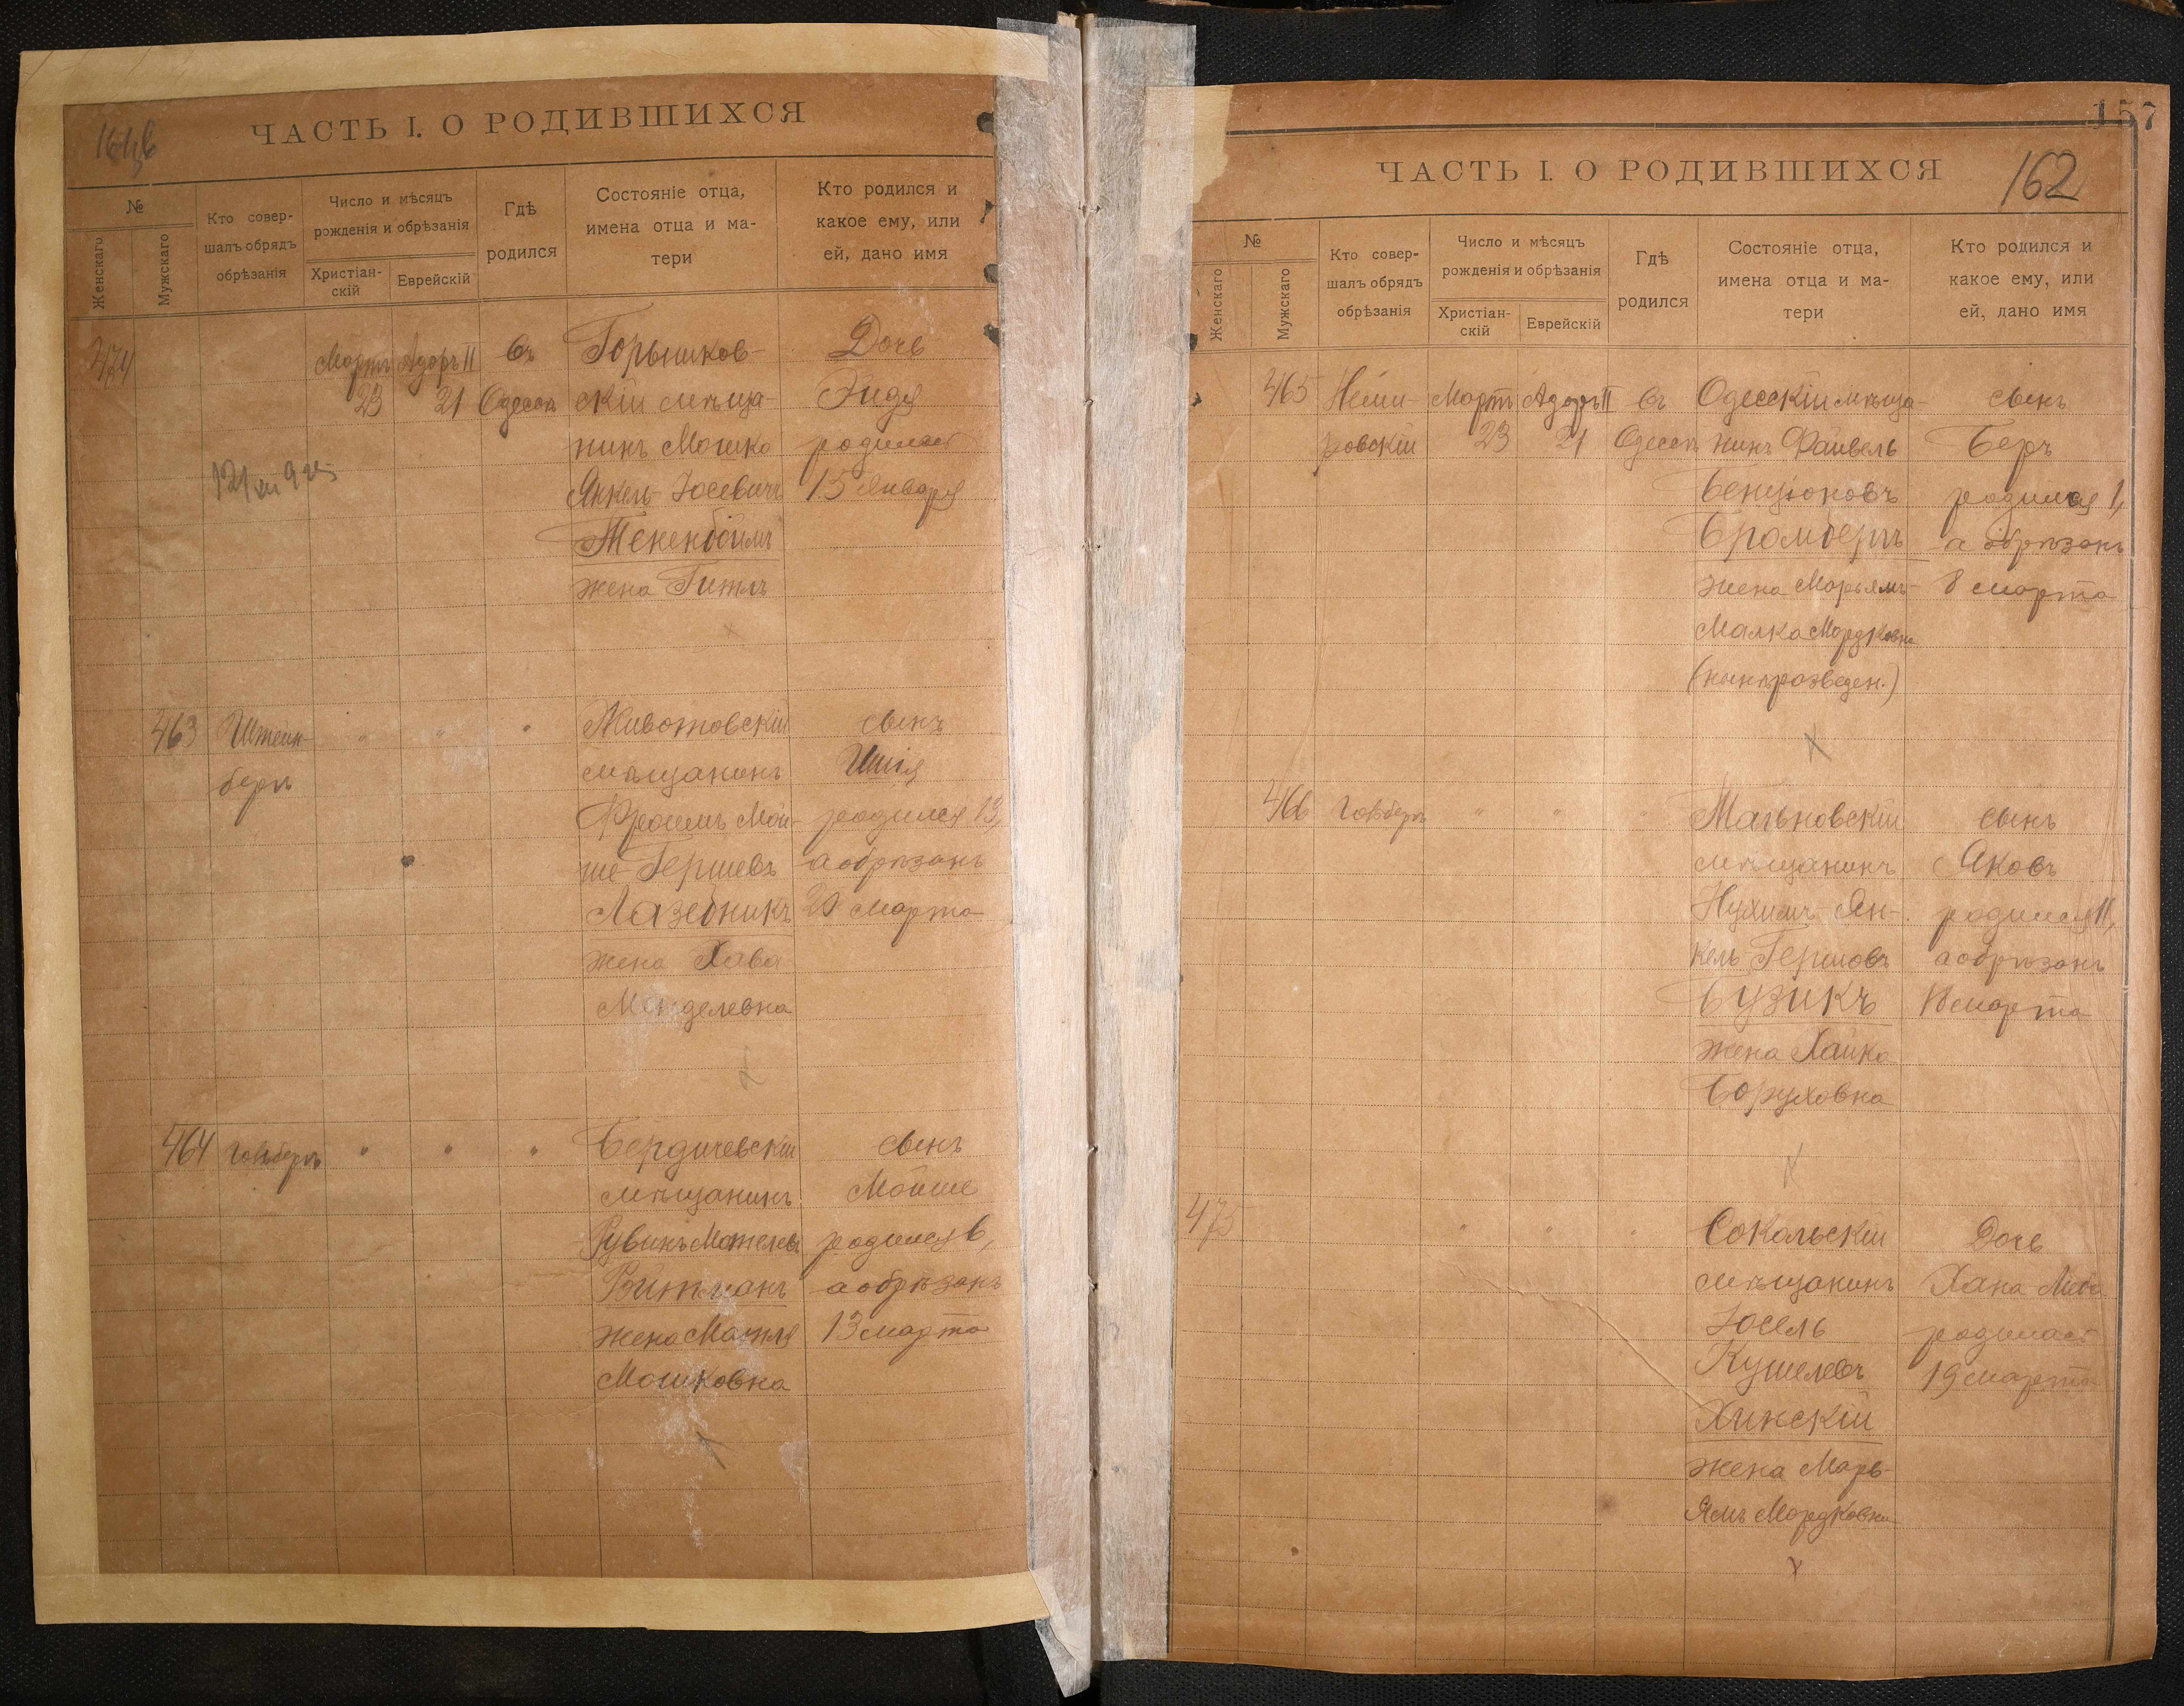 ЧАСТЬ I. О РОДИВШИХСЯ
№
Женскаго
Мужскаго
Кто совер-
шалъ обрядъ
обрѣзанія
Число и мѣсяцъ
рожденія и обрѣзанія
Христіан-
скій
Еврейскій
Гдѣ
родился
Состояніе отца,
имена отца и ма-
тери
Кто родился и
какое ему, или
ей, дано имя
474
Мартъ
23
Адаръ II
21
Въ
Одессѣ
скій мѣща-
нинъ Мошко
Янкель Іосевичъ
жена Гитль
Дочь
Эидя
родилась
15 Января
463
Штейн-
бергъ
"
"
"
Животовскій
мѣщанинъ
Фроимъ Мой-
ше Гершевъ
Лазебникъ
жена Хава
Менделевна
сынъ
Шпія
родился 13,
а обрѣзанъ
20 Марта
464
Гольдбергъ
"
"
"
Бердичевскій
мѣщанинъ
Рувинъ Мотелевъ
Витманъ
жена
Мошковна
сынъ
Мойше
родился 6,
а обрѣзанъ
13 марта
157
162
ЧАСТЬ I. О РОДИВШИХСЯ
№
Женскаго
Мужскаго
Кто совер-
шалъ обрядъ
обрѣзанія
Число и мѣсяцъ
рожденія и обрѣзанія
Христіан-
скій
Еврейскій
Гдѣ
родился
Состояніе отца,
имена отца и ма-
тери
Кто родился и
какое ему, или
ей, дано имя
465
Неми-
ровскій
Мартъ
23
Адаръ II
21
Въ
Одессѣ
Одесскій мѣща-
нинъ Файвель
Бенціоновъ
Бромбергъ
жена Марьямъ-
Малка Мордковна
(нынѣ розведен.)
сынъ
Беръ
родился 1,
а обрѣзанъ
8 марта
466
Гольдбергъ
"
"
"
мѣщанинъ
Нухимъ-Ян-
кель Гершовъ
Бузикъ
жена Хайка
Боруховна
сынъ
Яковъ
родился 11,
а обрѣзанъ
18 марта
475
"
"
"
Сокольскій
мѣщанинъ
Іосель
Кушелевъ
Хинскій
жена Марь-
ямъ Мордковна
Дочь
Хана
родилась
19 марта